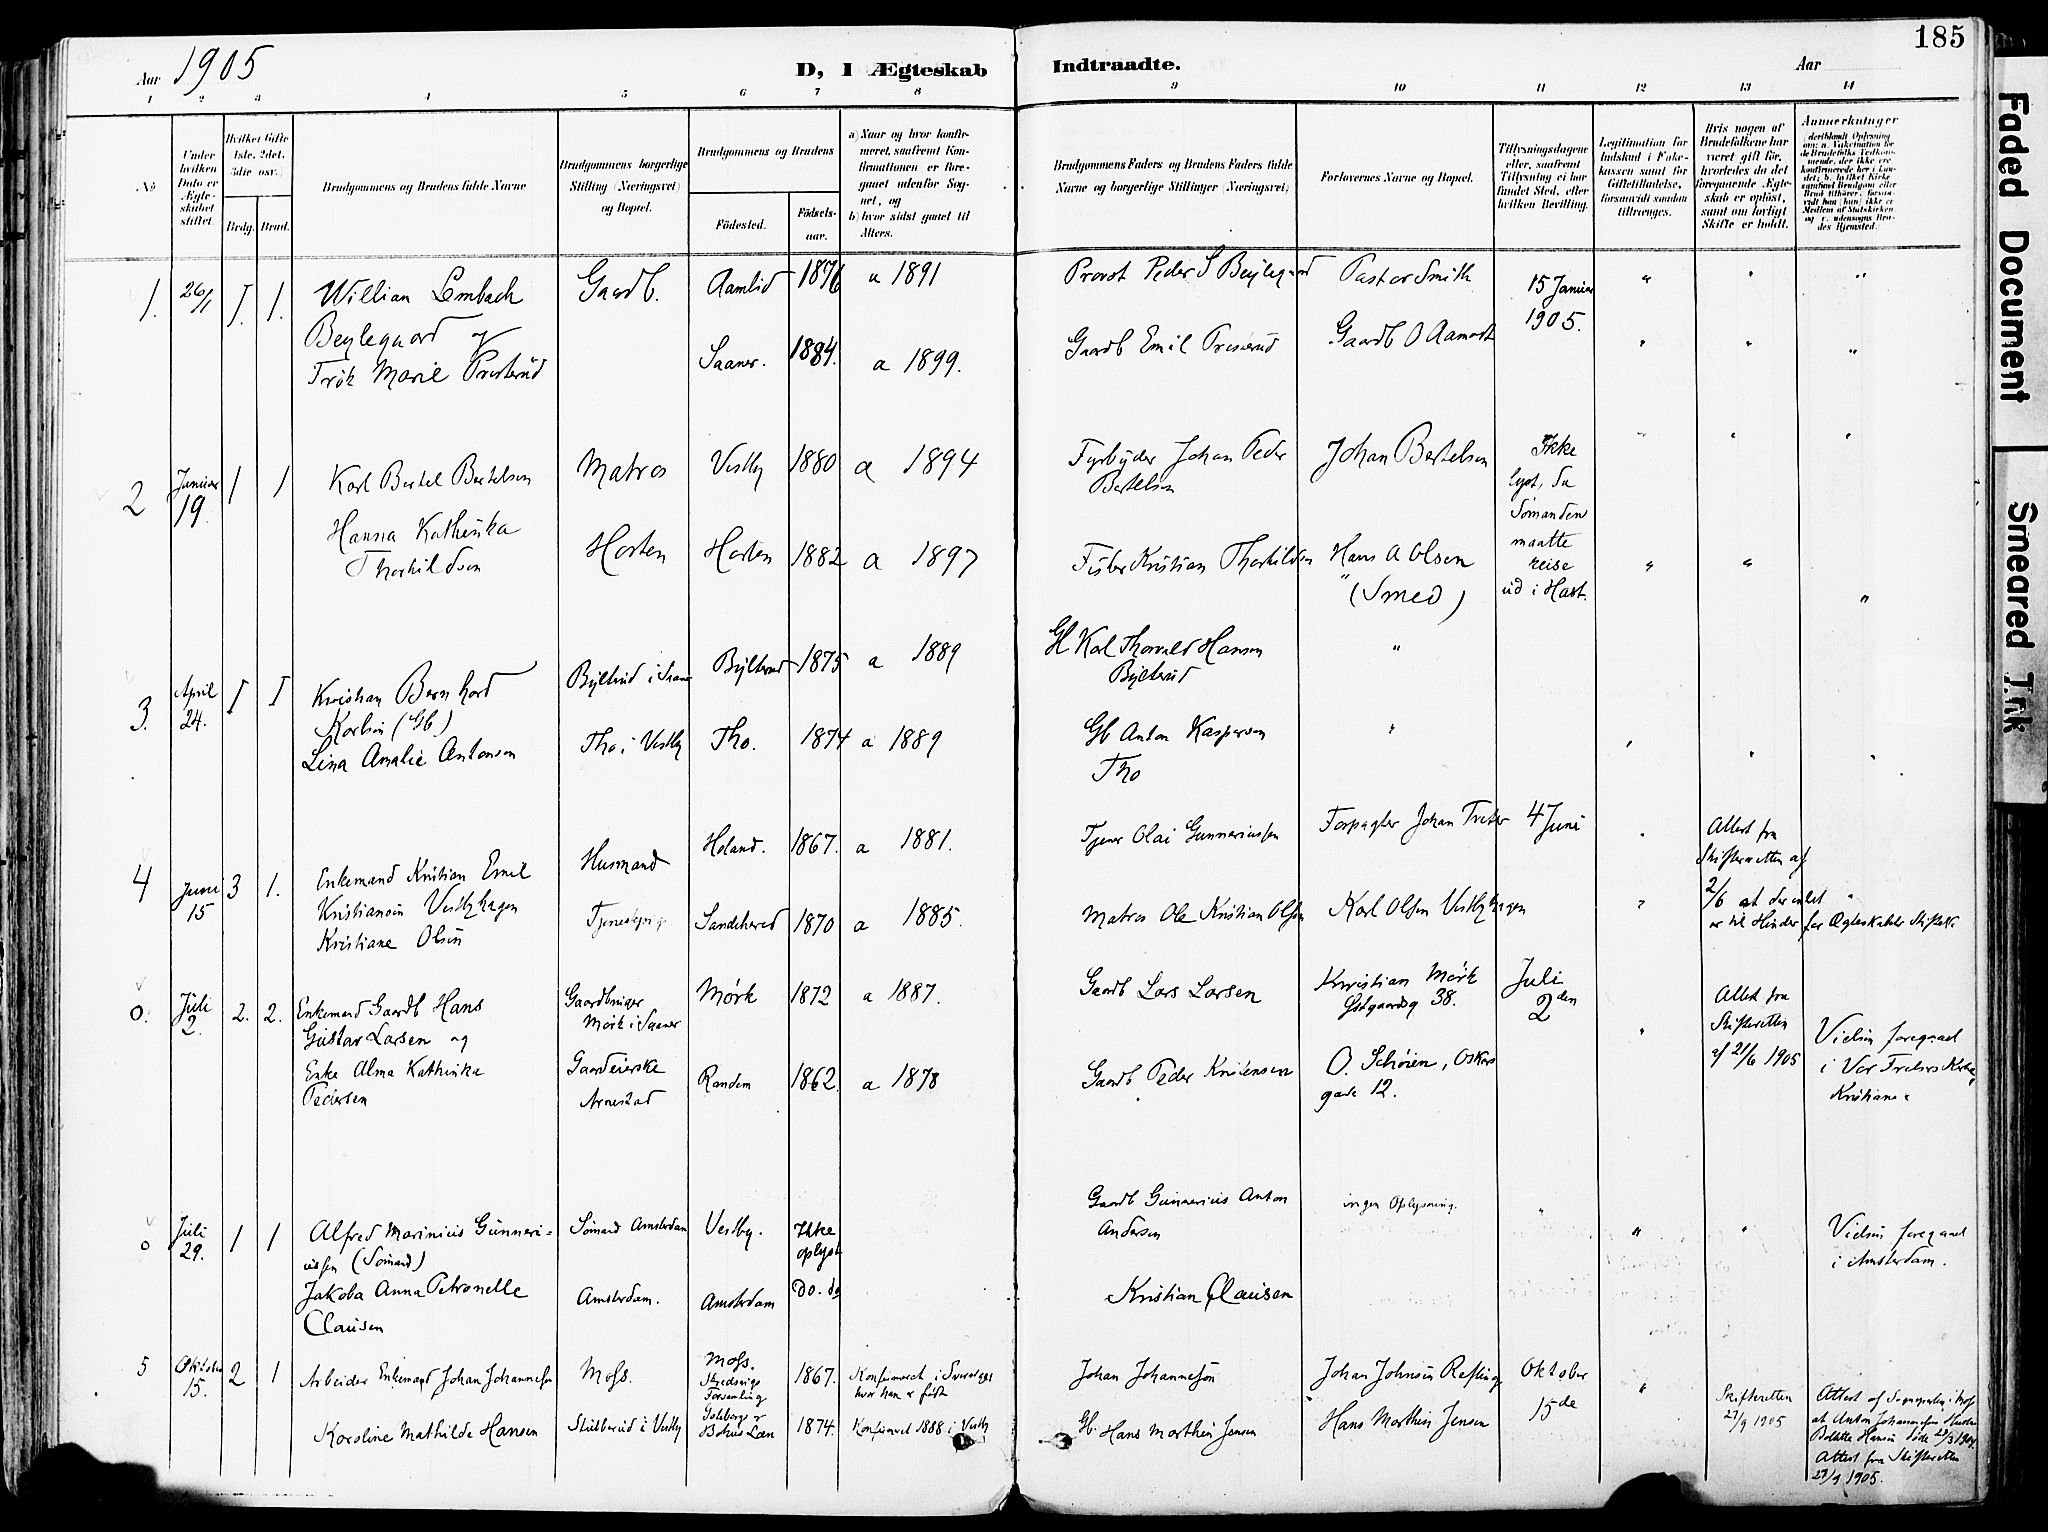 185
Aar 1905
D, I Ægteskab Indtraadte.
Aar
1 2 3 4 5 6 7 8 9 10 11 12 13 14
No
Under hvilken Dato er Ægteskabet stiftet.
Hvilket Gifte 1ste, 2det, 3die osv.)
Brdg. Brud.
Brudgommens og Brudens fulde Navne
Brudgommens borgerlige Stilling (Næringsvei) og Bopæl.
Brudgommens og Brudens
Födested.
Födselsaar.
a) Naar og hvor konfirmeret, saafremt Konfirmationen er foregaaet udenfor Sognet, og
b) hvor sidst gaaet til Alters.
Brudgommens Faders og Brudens Faders fulde Navne og borgerlige Stillinger (Næringsvei)
Forlovernes Navne og Bopæl.
Tillysningsdagene eller, saafremt Tillysning ei har fundet Sted, efter hvilken Bevilling.
Legitimation for Indskud i Enkekassen samt for Giftetilladelse, forsaavidt saadan tiltrænges.
Hvis nogen af Brudefolkene har været gift før, hvorledes da det foregaaende Ægteskab er opløst, samt om lovligt Skifte er holdt.
Anmerkninger
1. 26/1 1. 1. Willian Lembach
Beylegaard og
Frøk Marie Presterud
Gaardb. Aamlid 1876 a 1891
Saaner. 1884. a 1899.
Provst Peder S Beylegaard
Pastor Smith
15 Januar
1905.
Gaardb Emil Presterud
Gaardb O Aamodt
2 Januar 19. 1 1 Karl Bertel Bertelsen
Hanna Kathinka
Thorkildsen
Matros Vestby 1880 a 1894
Horten Horten 1882 a 1897
Fyrbøder Johan Peder
Bertelsen
Johan Bertelsen
Ikke
lyst, da
Sømanden
maatte
reise
ud i Hast.
Fisker Kristian Thorkildsen
Hans A Olsen
(Smed)
3. April 24. 1 1 Kristian Bernhard
Karlsen (Gb.)
Lina Amalie Antonsen
Bylterud i Saaner Bylterud 1875 a 1889
Tho i Vestby Tho. 1874 a 1889
Gb Karl Thorvald Hansen
Bylterud
Gb Anton Kaspersen
Tho
4 Juni 15 3 1. Enkemand Kristian Emil
Kristiansen Vestbyhagen
Kristiane Olsen
Husmand Høland. 1867. a 1881.
Sandehered 1870 a 1885.
Tjener Olai Gunneriussen
Forpagter Johan Treter
4 Juni
Attest fra
Skifteretten af
2/6 at der intet
er til Hinder for Ægteskabets Stiftelse
Matros Ole Kristian Olsen
Karl Olsen Vestbyhagen
0. Juli 2. 2. 2. Enkemand Gaardb Hans
Gustav Larsen og
Enke Alma Kathinka
Pedersen
Gaardbruger
Mørk i Saaner
Mørk 1872 a 1887.
Gaardeierske
Arnestad
Randem 1862. a 1878
Gaardb Lars Larsen
Kristian Mørk
38.
Juli
2den
Attest fra
Skifteretten
af 2/6 1905
Vielsen foregaaet
i Vor Frelsers Kirke,
Kristiania
Gaardb Peder Kristensen
O. Schøien, Oskars
gade 12.
0 Juli 29. 1 1 Alfred Marinius Gunneri-
ussen (Sømand)
Jakoba Anna Petronelle
Clausen
Sømand Amsterdam Vestby. Ikke
oplyst
Amsterdam. Amsterdam Do. do
Gaardb Gunnerius Anton
Andersen
ingen Oplysning.
Vielsen foregaaet
i Amsterdam.
Kristian Clausen
5 Oktober 15. 2 1 Arbeider Enkemand Johan Johannesen
Moss. Moss. 1867. Konfirmeret i Sverige,
hvor han er født
Karoline Mathilde Hansen
Stubberud i Vestby
Bohus Læn 1874. Konfirmeret 1888 i Vestby
Johan Johannesson
Johan Johnsen Refling
Oktober
15de
Gb. Hans Marthin Jensen
Hans Marthin Jensen
Skifteretten
27/9 1905
Attest af Sognepresten i Moss
at Anton Johannesens Hustru
Bolette Hansen døde 27/3 1904.
Attest fra Skifteretten
27/9 1905.
Faded Document
Smeared Ink